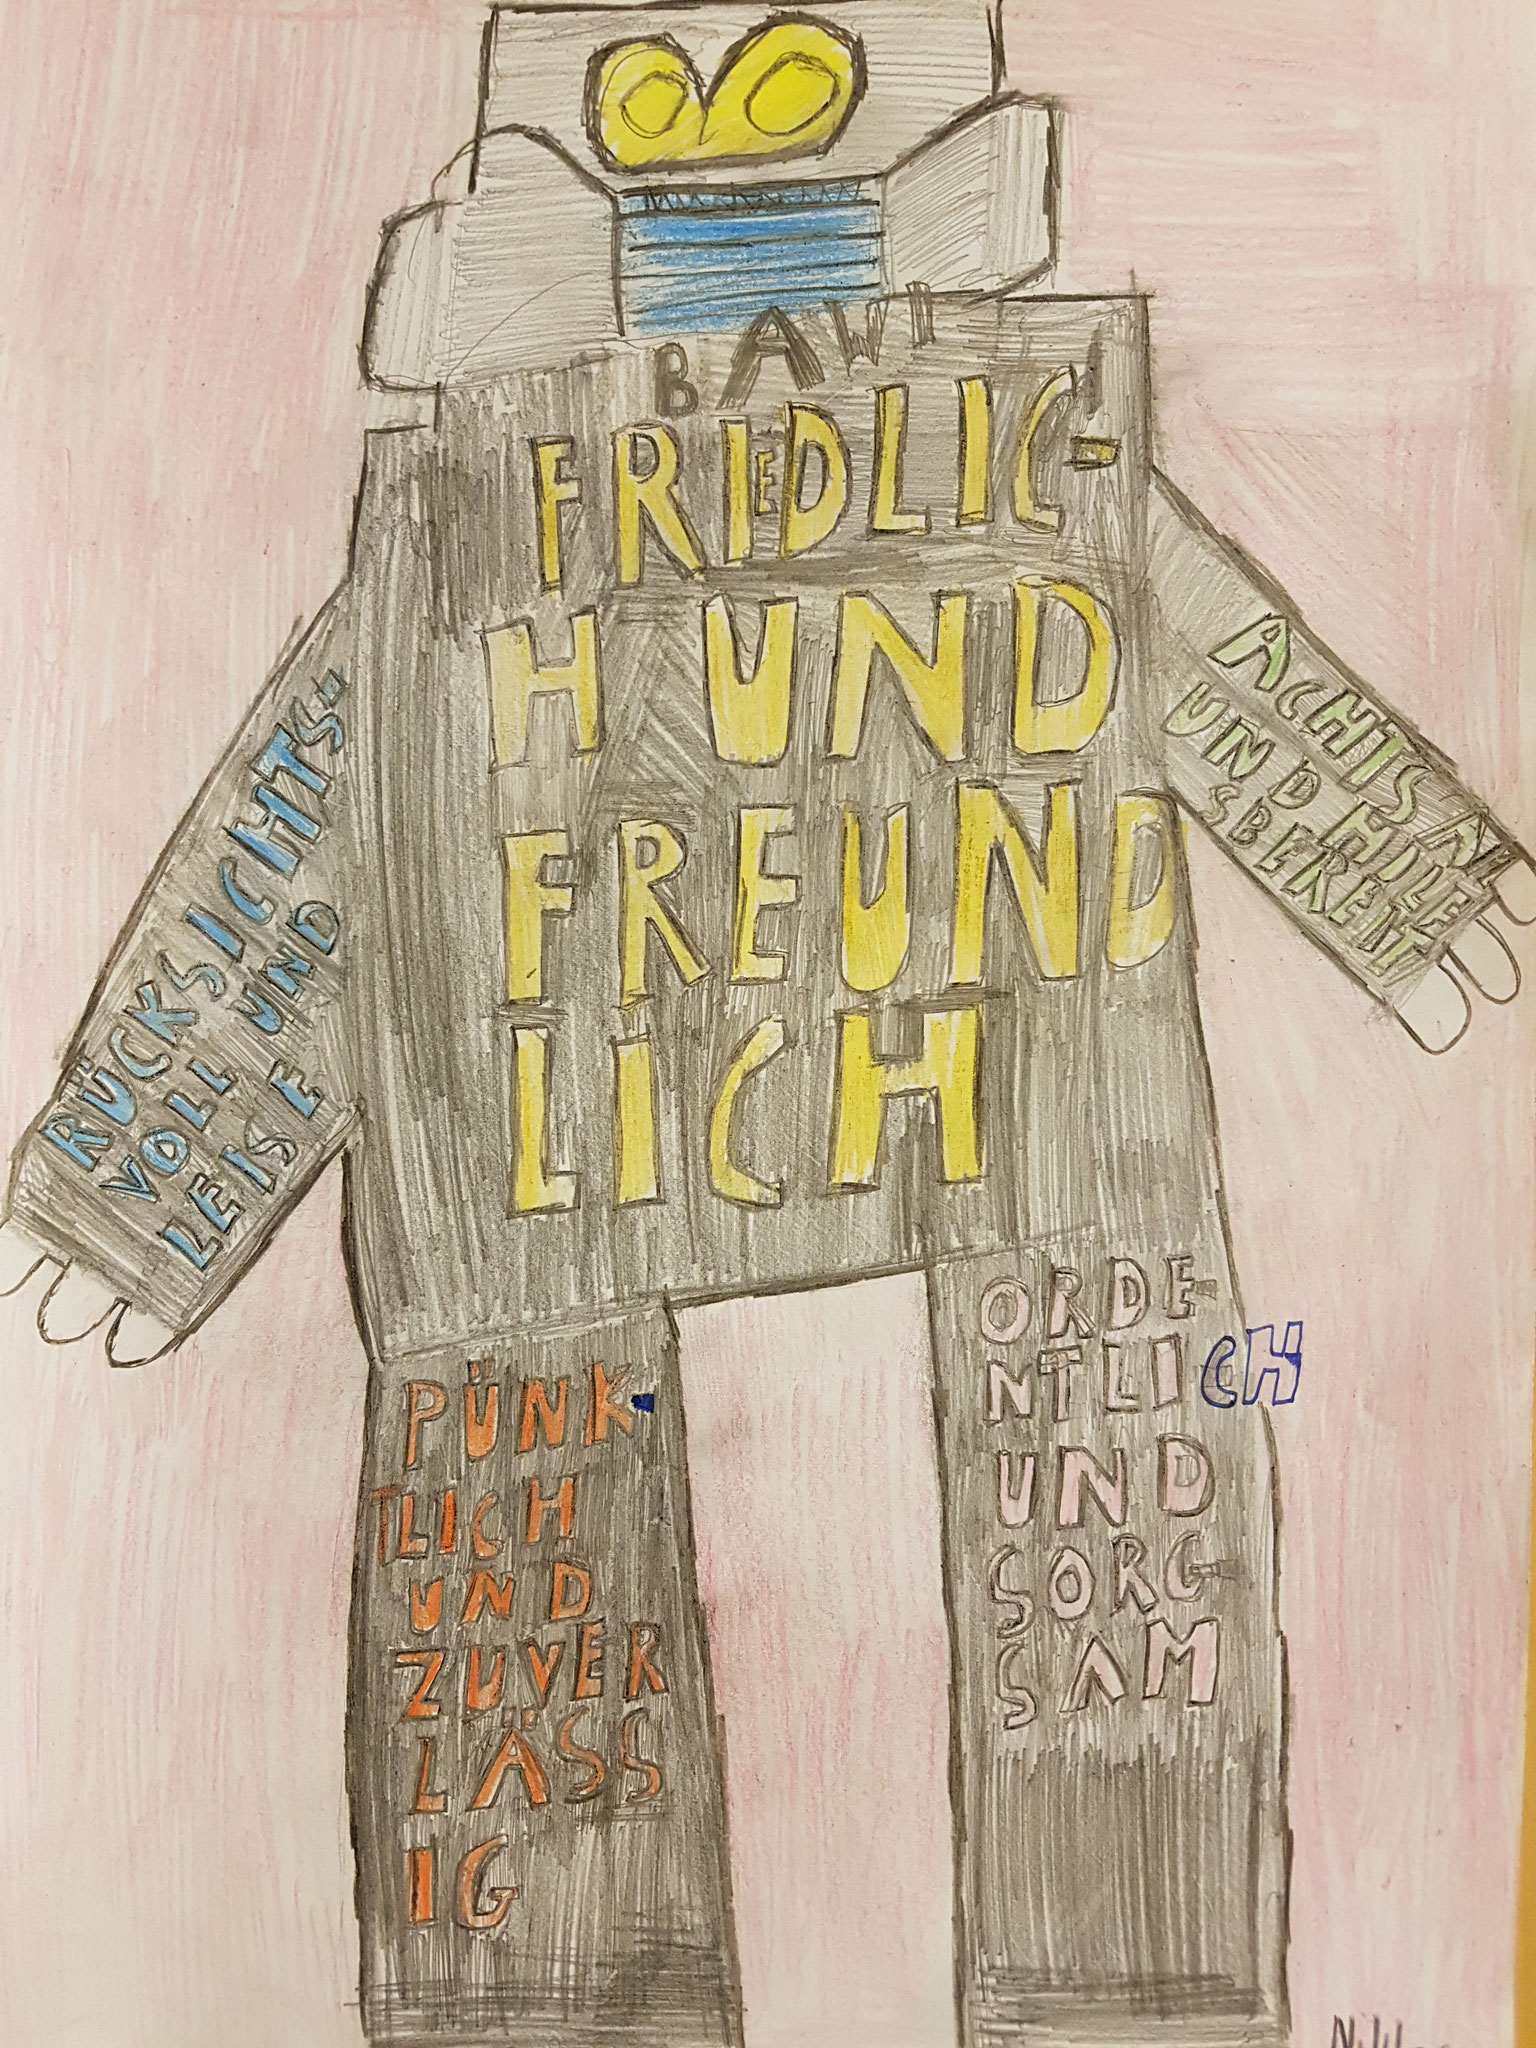 BAWI
FRIEDLIC-
H UND
FREUND
LICH
RÜCKSICHTS-
VOLL UND
LEISE
ACHTSAM
UND HILF
SBEREIT
PÜNK-
TLICH
UND
ZUVER
LÄSS
IG
ORDE-
NTLICH
UND
SORG-
SAM